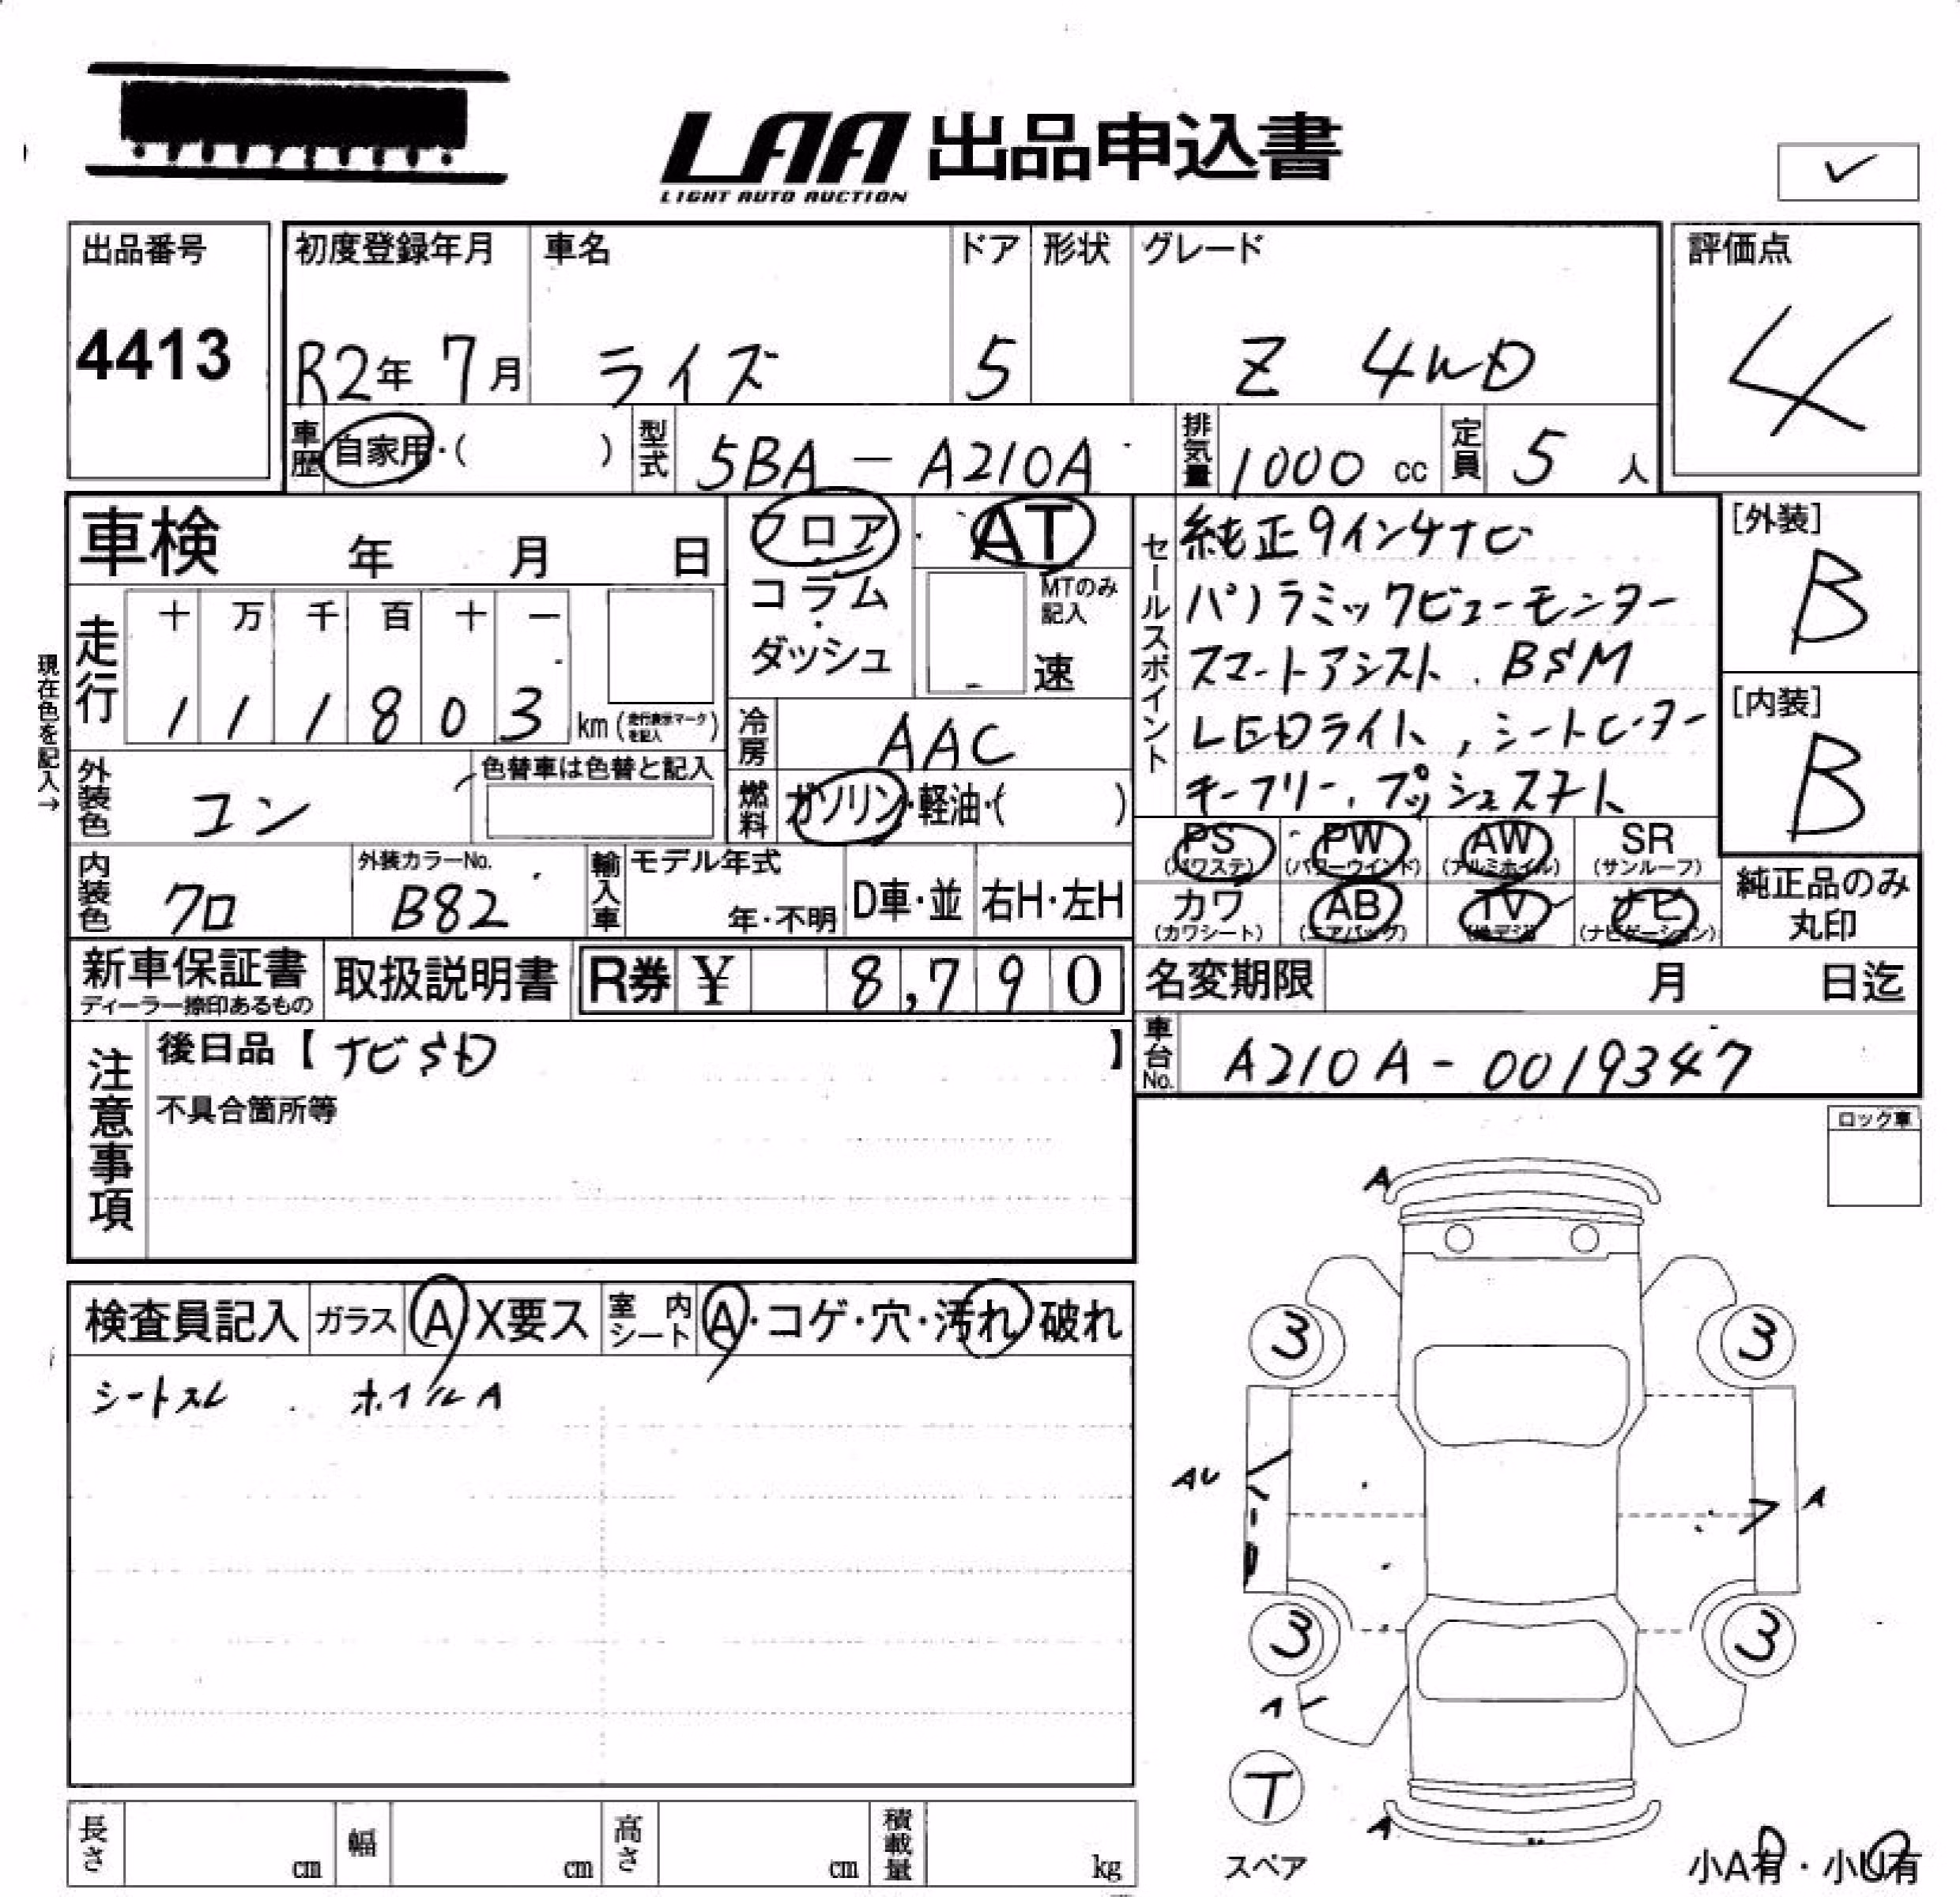 LAA 出品申込書
LIGHT AUTO AUCTION
✓
出品番号
4413
初度登録年月
R2年 7月
車名
ライズ
ドア
5
形状
グレード
Z 4WD
評価点
4
車歴 自家用・( )
型式 5BA - A210A
排気量 1000 cc
定員 5 人
車検 年 月 日
現在色を記入→
走行
十 万 千 百 十 一
1 1 1 8 0 3 km (走行表示マークを記入)
フロア・コラム・ダッシュ
AT
MTのみ記入
速
冷房 AAC
燃料 ガソリン・軽油・( )
外装色 コン
色替車は色替と記入
内装色 クロ
外装カラーNo.
B82
輸入車 モデル年式
年・不明
D車・並
右H・左H
セールスポイント
純正9インチナビ
パノラミックビューモニター
スマートアシスト、BSM
LEDライト, シートヒーター
キーフリー、プッシュスタート
[外装]
B
[内装]
B
PS (パワステ)
PW (パワーウインド)
AW (アルミホイル)
SR (サンルーフ)
カワ (カワシート)
AB (エアバッグ)
TV (地デジ)
ナビ (ナビゲーション)
純正品のみ丸印
新車保証書
ディーラー捺印あるもの
取扱説明書
R券 ¥ 8,790
名変期限 月 日迄
注意事項
後日品【 ナビSD 】
不具合箇所等
車台No. A210A - 0019347
ロック車
検査員記入
ガラス A X要ス
室内シート A・コゲ・穴・汚れ 破れ
シートスレ . ホイルA
A
3 3
AU A
3 3
A
T
スペア
A
小A有・小U有
長さ cm
幅 cm
高さ cm
積載量 kg